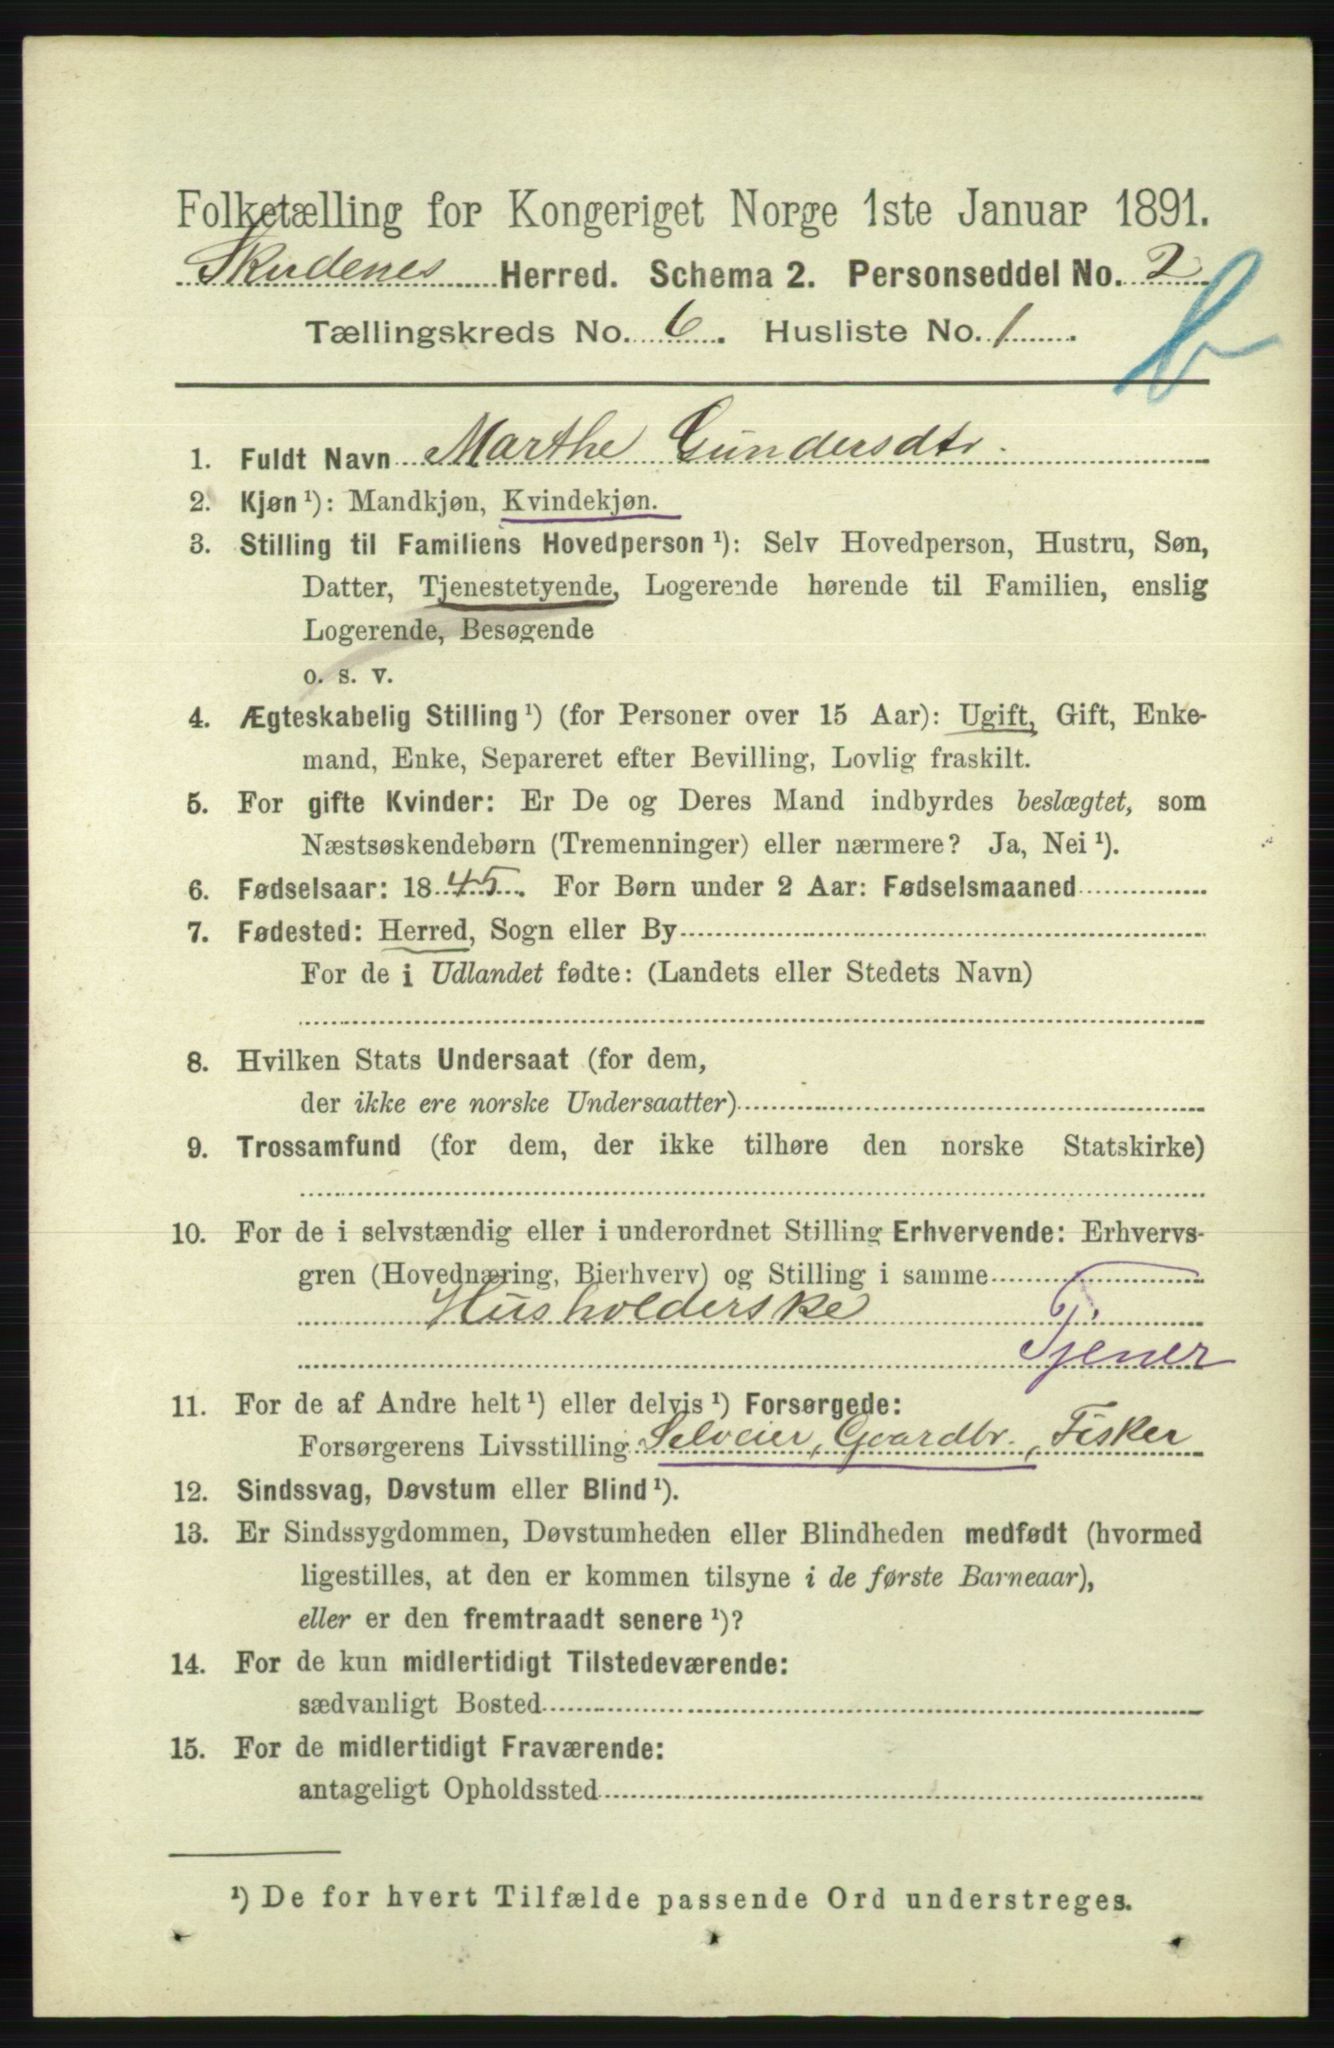 Folketælling for Kongeriget Norge 1ste Januar 1891.
Skudenes Herred. Schema 2. Personseddel No. 2
Tællingskreds No. 6. Husliste No. 1.
b
1. Fuldt Navn Marthe Gundersdtr.
2. Kjøn ¹): Mandkjøn, Kvindekjøn.
3. Stilling til Familiens Hovedperson ¹): Selv Hovedperson, Hustru, Søn,
Datter, Tjenestetyende, Logerende hørende til Familien, enslig
Logerende, Besøgende
o. s. v.
4. Ægteskabelig Stilling ¹) (for Personer over 15 Aar): Ugift, Gift, Enke-
mand, Enke, Separeret efter Bevilling, Lovlig fraskilt.
5. For gifte Kvinder: Er De og Deres Mand indbyrdes beslægtet, som
Næstsøskendebørn (Tremenninger) eller nærmere? Ja, Nei ¹).
6. Fødselsaar: 1845. For Børn under 2 Aar: Fødselsmaaned
7. Fødested: Herred, Sogn eller By
For de i Udlandet fødte: (Landets eller Stedets Navn)
8. Hvilken Stats Undersaat (for dem,
der ikke ere norske Undersaatter)
9. Trossamfund (for dem, der ikke tilhøre den norske Statskirke)
10. For de i selvstændig eller i underordnet Stilling Erhvervende: Erhvervs-
gren (Hovednæring, Bierhverv) og Stilling i samme
Husholderske
Tjener
11. For de af Andre helt ¹) eller delvis ¹) Forsørgede:
Forsørgerens Livsstilling Selveier, Gaardbr., Fisker
12. Sindssvag, Døvstum eller Blind ¹).
13. Er Sindssygdommen, Døvstumheden eller Blindheden medfødt (hvormed
ligestilles, at den er kommen tilsyne i de første Barneaar),
eller er den fremtraadt senere ¹)?
14. For de kun midlertidigt Tilstedeværende:
sædvanligt Bosted
15. For de midlertidigt Fraværende:
antageligt Opholdssted
¹) De for hvert Tilfælde passende Ord understreges.